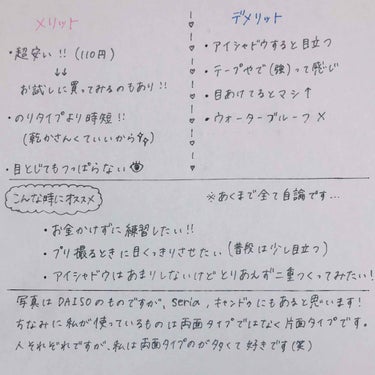 メリット
・超安い!! (110円)
↓↓
お試しに買ってみるのもあり!!
・のりタイプより時短!!
(乾かさんくていいから)
・目とじてもつっぱらない
デメリット
・アイシャドウすると目立つ
・テープやで(強)って感じ
・目あけてるとマシ↑
・ウォータープルーフ×
こんな時にオススメ
※あくまで全て自論です…
・お金かけずに練習したい!!
・プリ撮るときに目くっきりさせたい(普段は少し目立つ)
・アイシャドウはあまりしないけどとりあえず二重つくってみたい!
写真はDAISOのものですが、seria,キャンドゥにもあると思います!
ちなみに私が使っているものは両面タイプではなく片面タイプです。
人それぞれですが、私は両面タイプのが多くて好きです(笑)